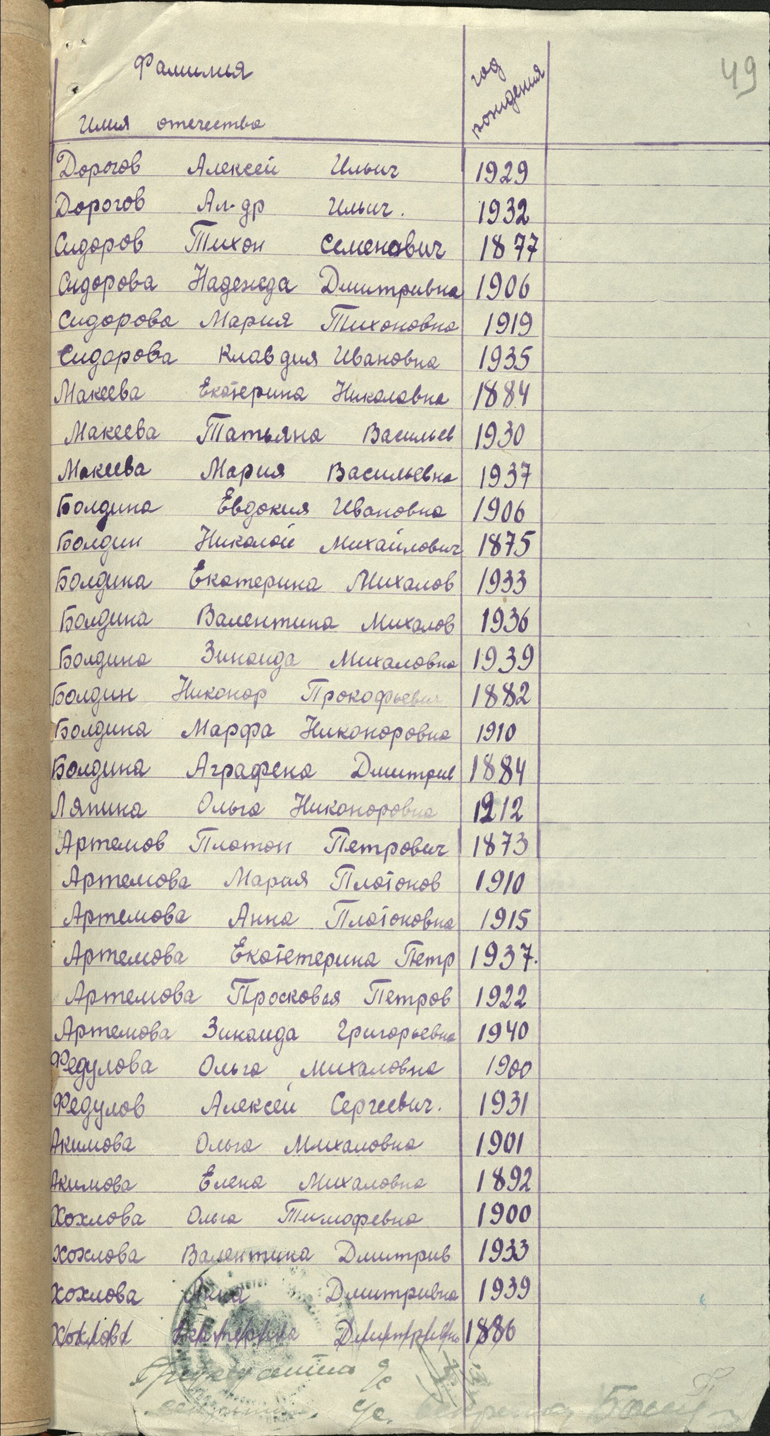 49
Фамилия
год
рождения
Имя отечество
Дорогов Алексей Ильич 1929
Дорогов Ал-др Ильич. 1932
Сидоров Тихон Семенович 1877
Сидорова Надежда Дмитривна 1906
Сидорова Мария Тихоновна 1919
Сидорова Клавдия Ивановна 1935
Макеева Екатерина Николавна 1884
Макеева Татьяна Васильев 1930
Макеева Мария Васильевна 1937
Болдина Евдокия Ивановна 1906
Болдин Николай Михайлович 1875
Болдина Екатерина Михалов 1933
Болдина Валентина Михалов 1936
Болдина Зинаида Михаловна 1939
Болдин Никонор Прокофьевич 1882
Болдина Марфа Никоноровна 1910
Болдина Аграфена Дмитрив 1884
Ляпина Ольга Никоноровна 1912
Артемов Платон Петрович 1873
Артемова Мария Платонов 1910
Артемова Анна Платоновна 1915
Артемова Екатетерина Петр 1937.
Артемова Просковья Петров 1922
Артемова Зинаида Григорьевна 1940
Федулова Ольга Михаловна 1900
Федулов Алексей Сергеевич. 1931
Акимова Ольга Михаловна 1901
Акимова Елена Михаловна 1892
Хохлова Ольга Тимофевна 1900
Хохлова Валентина Дмитрив 1933
Хохлова Анна Дмитривна 1939
Хохлова Дмитривна 1886